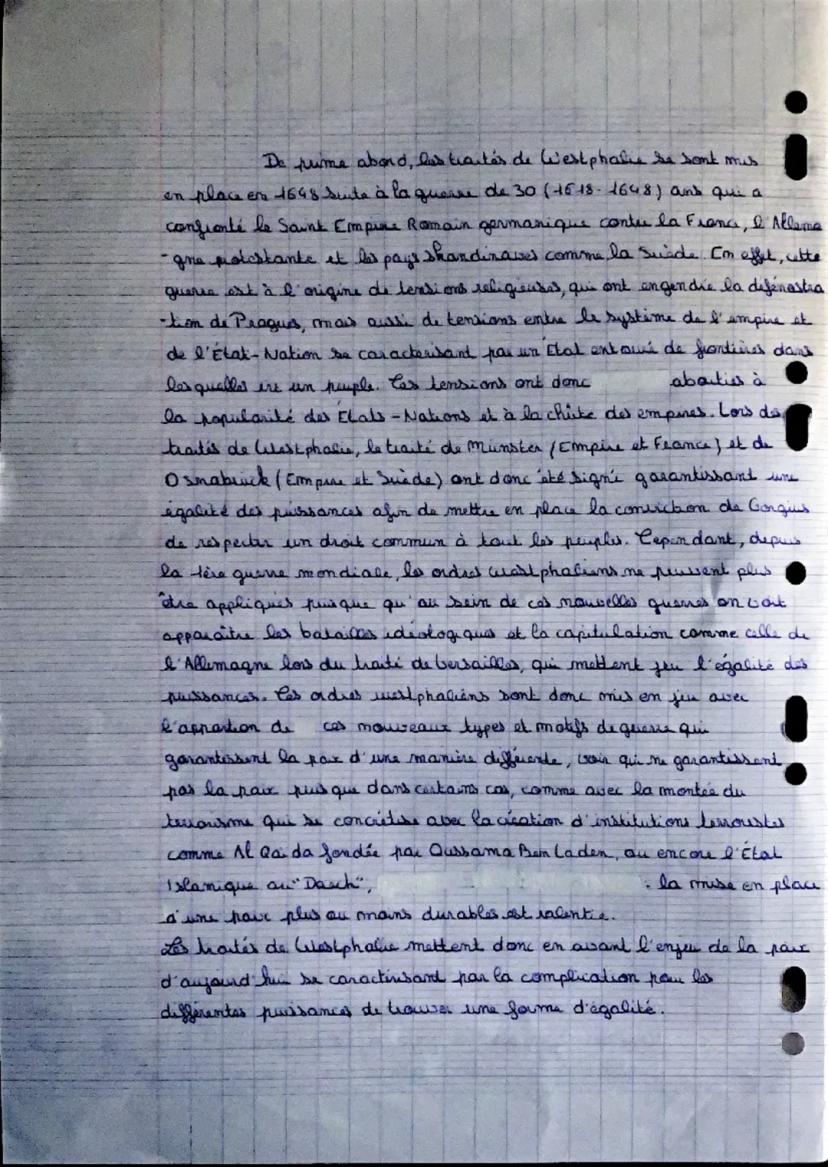 De prime abord, les traités de Westphalie se sont mis
en place en 1648 suite à la guerre de 30 (1618-1648) ans qui a
confronté le Saint Empire Romain germanique contre la France, l'Allema
-gne protestante et les pays Skandinaves comme la Suède. En effet, cette
guerre est à l'origine de tensions religieuses, qui ont engendré la défénestra
-tion de Pragues, mais aussi de tensions entre le système de l'empire et
de l'État-Nation se caractérisant par un État entouré de frontières dans
lesquelles est un peuple. Ces tensions ont donc abouties à
la popularité des États-Nations et à la chûte des empires. Lors des
traités de Westphalie, le traité de Münster (Empire et France) et de
Osnabruck (Empire et Suède) ont donc été signé garantissant une
égalité des puissances afin de mettre en place la conviction de Gorgias
de respecter un droit commun à tout les peuples. Cependant, depuis
la 1ère guerre mondiale, les ordres westphaliens ne peuvent plus
être appliqués puisque qu'au sein de ces nouvelles guerres on voit
apparaître les batailles idéologiques et la capitulation comme celle de
l'Allemagne lors du traité de Versailles, qui mettent jeu l'égalité des
puissances. Ces ordres westphaliens sont donc mis en jeu avec
l'appartion de ces nouveaux types et motifs de guerre qui
garantissent la paix d'une manière différente, voir qui ne garantissent
pas la paix puisque dans certains cas, comme avec la montée du
terrorisme qui se concrétise avec la création d'institutions terroristes
comme Al Qaïda fondée par Oussama Ben Laden, ou encore l'État
Islamique ou "Daech", la mise en place
d'une paix plus ou moins durables est ralentie.
Les traités de Westphalie mettent donc en avant l'enjeu de la paix
d'aujourd'hui se caractérisant par la complication pour les
différentes puissances de trouver une forme d'égalité.